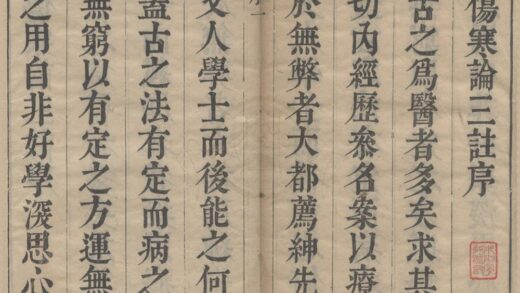 傷寒論三註序
古之爲醫者多矣求其
切內經歷叅名案以療
於無弊者大都薦紳先
文人學士而後能之何
蓋古之法有定而病之
無窮以有定之方運無
之用自非好學深思心